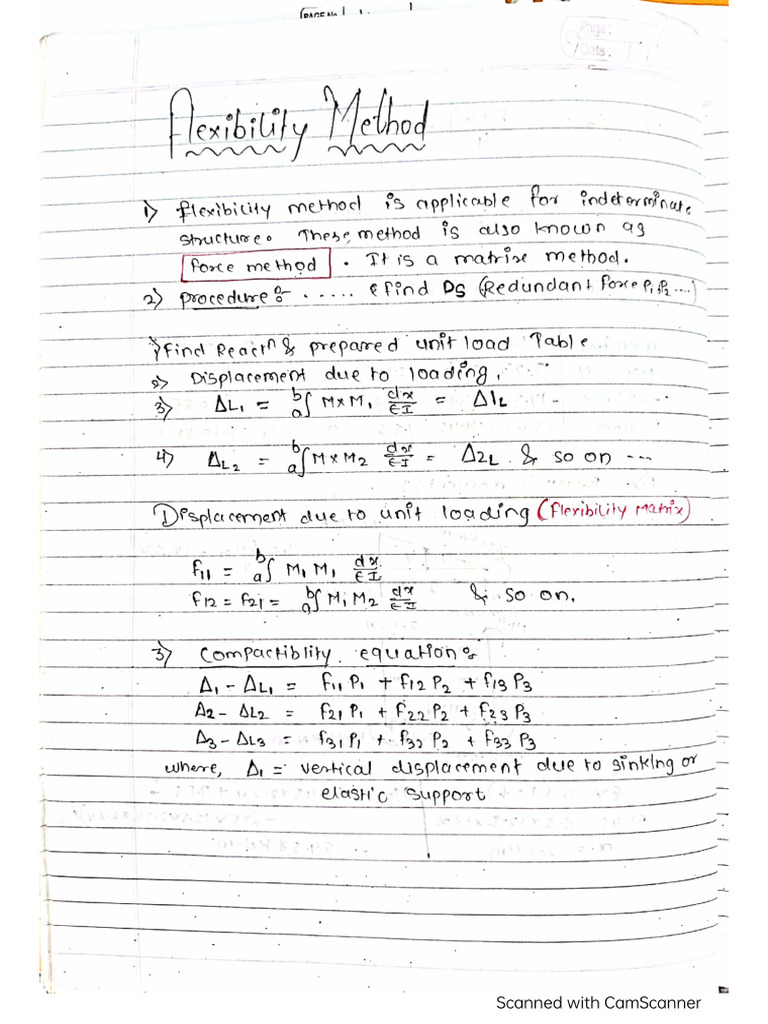 PAGE No
Page:
Date:
Flexibility Method
1) flexibicity method is applicable for indeterminate
structure. These method is also known as
force method . It is a matrix method.
2) procedure :- ...... & find Ds (Redundant force P1, P2 ....)
1) find Reactⁿ & prepared unit load Table.
2) Displacement due to loading.
3) ΔL1 = a∫b M x M1 dx/EI = Δ1L
4) ΔL2 = a∫b M x M2 dx/EI = Δ2L & so on ---
Displacement due to unit loading (flexibility Matrix)
f11 = a∫b M1 M1 dx/EI
f12 = f21 = a∫b M1 M2 dx/EI & so on.
3) Compactiblity equation :-
Δ1 - ΔL1 = f11 P1 + f12 P2 + f13 P3
Δ2 - ΔL2 = f21 P1 + f22 P2 + f23 P3
Δ3 - ΔL3 = f31 P1 + f32 P2 + f33 P3
where, Δ1 = vertical displacement due to sinking or
elastic support
Scanned with CamScanner